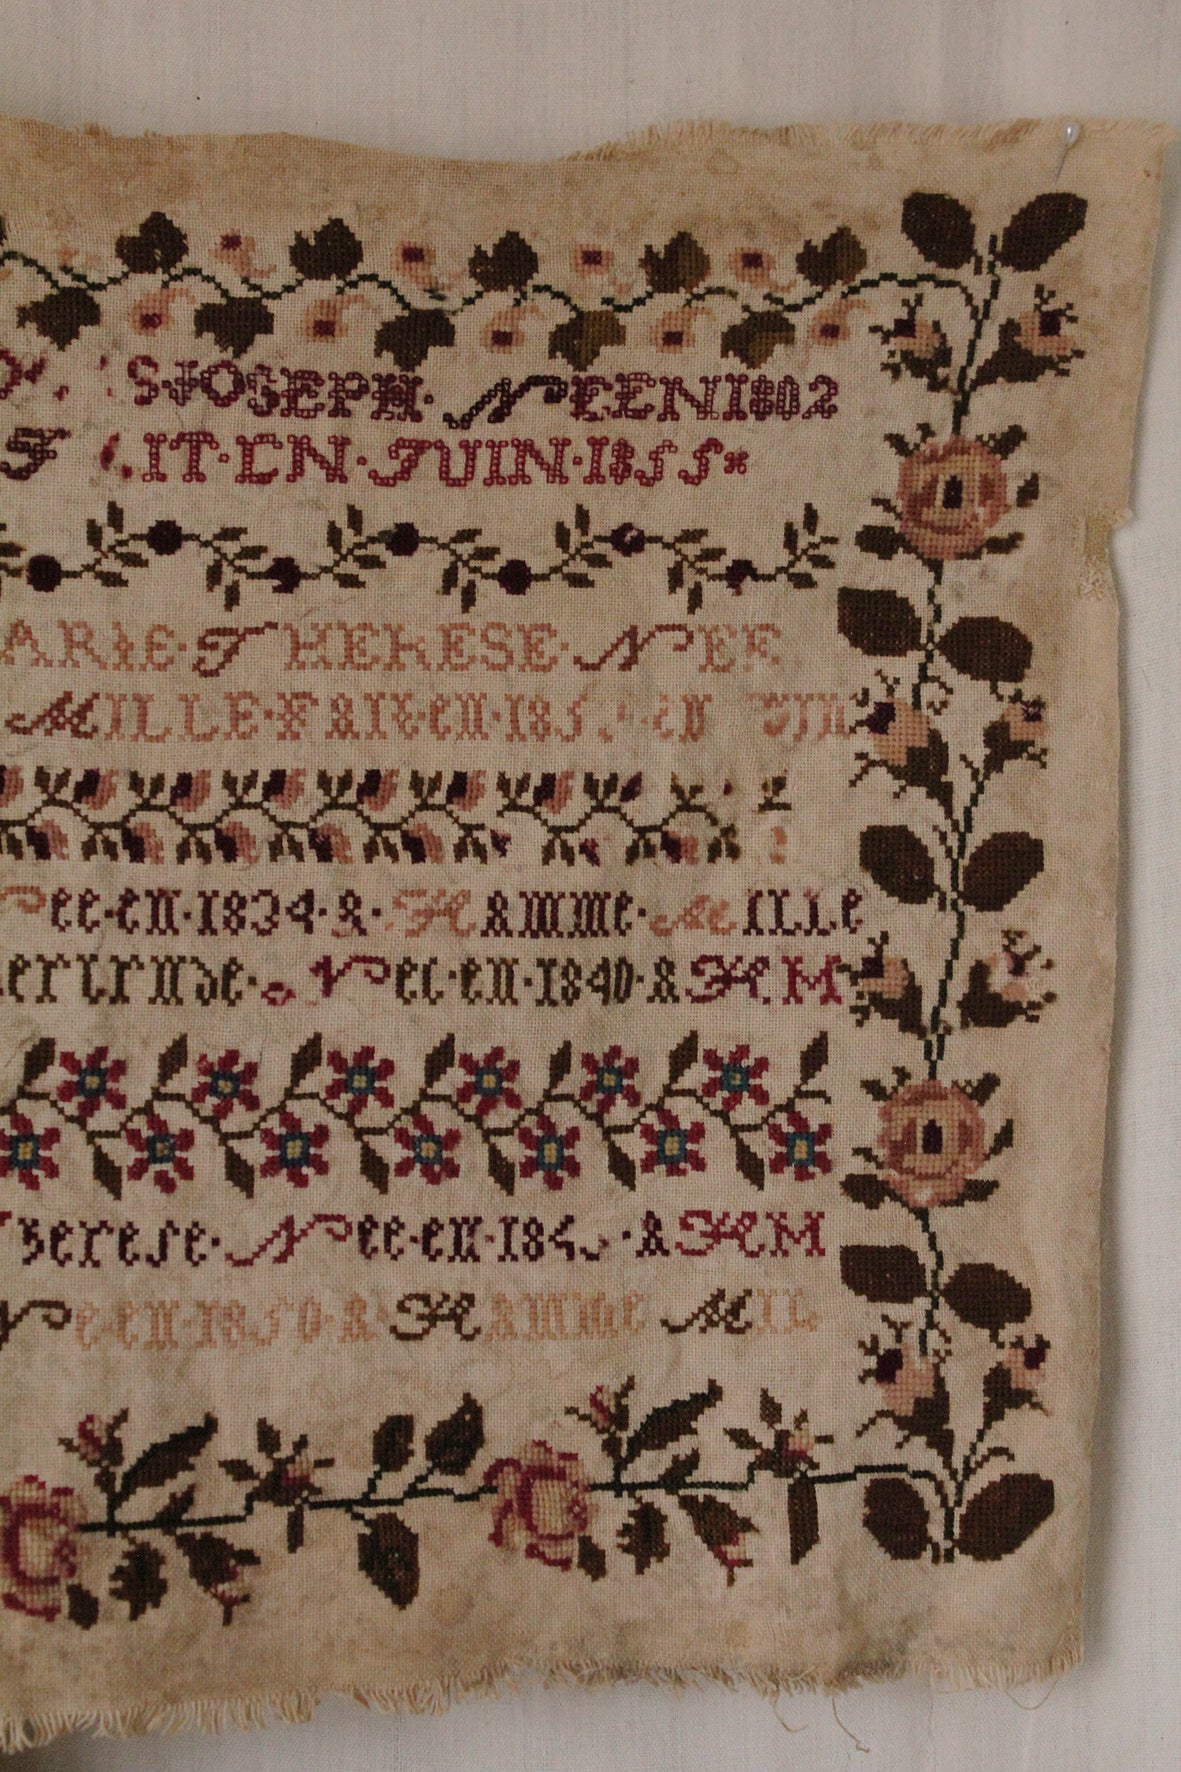 S·JOSEPH· NEE EN 1802
IT·EN·JUIN·1855
ARIE·THERESE·NEE
MILLE·FAIT·EN·185 EN
NEE·EN·1834·A·HAMME·MILLE
ertrude· NEE·EN·1840·A HM
herese· NEE·EN·184 ·A HM
NEE EN·1850·A·HAMME MIL